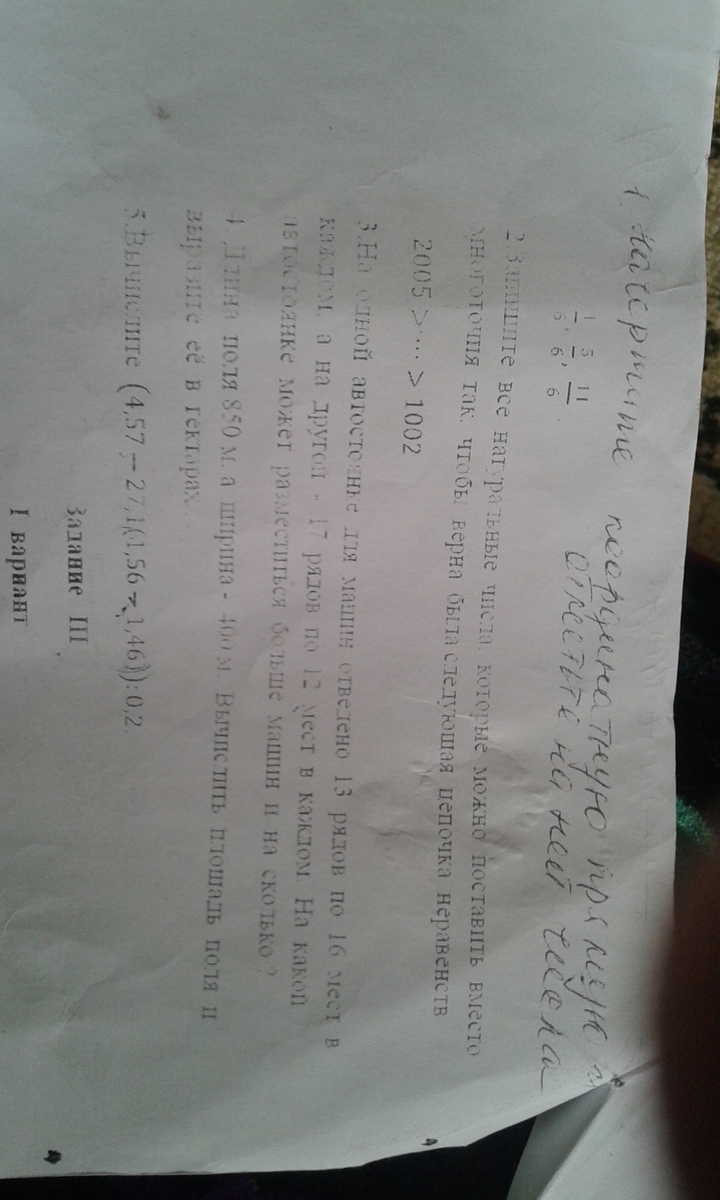 1. Начертите координатную прямую и
отметьте на ней числа
1/6, 5/6, 11/6.
2.Запишите все натуральные числа, которые можно поставить вместо
многоточия так, чтобы верна была следующая цепочка неравенств
2005 >...> 1002
3.На одной автостоянке для машин отведено 13 рядов по 16 мест в
каждом, а на другой - 17 рядов по 12 мест в каждом. На какой
автостоянке может разместиться больше машин и на сколько?
4. Длина поля 850 м, а ширина - 400 м. Вычислить площадь поля и
выразите её в гектарах.
5.Вычислите (4,57 - 27,1(1,56 - 1,46)):0,2.
Задание III
I вариант